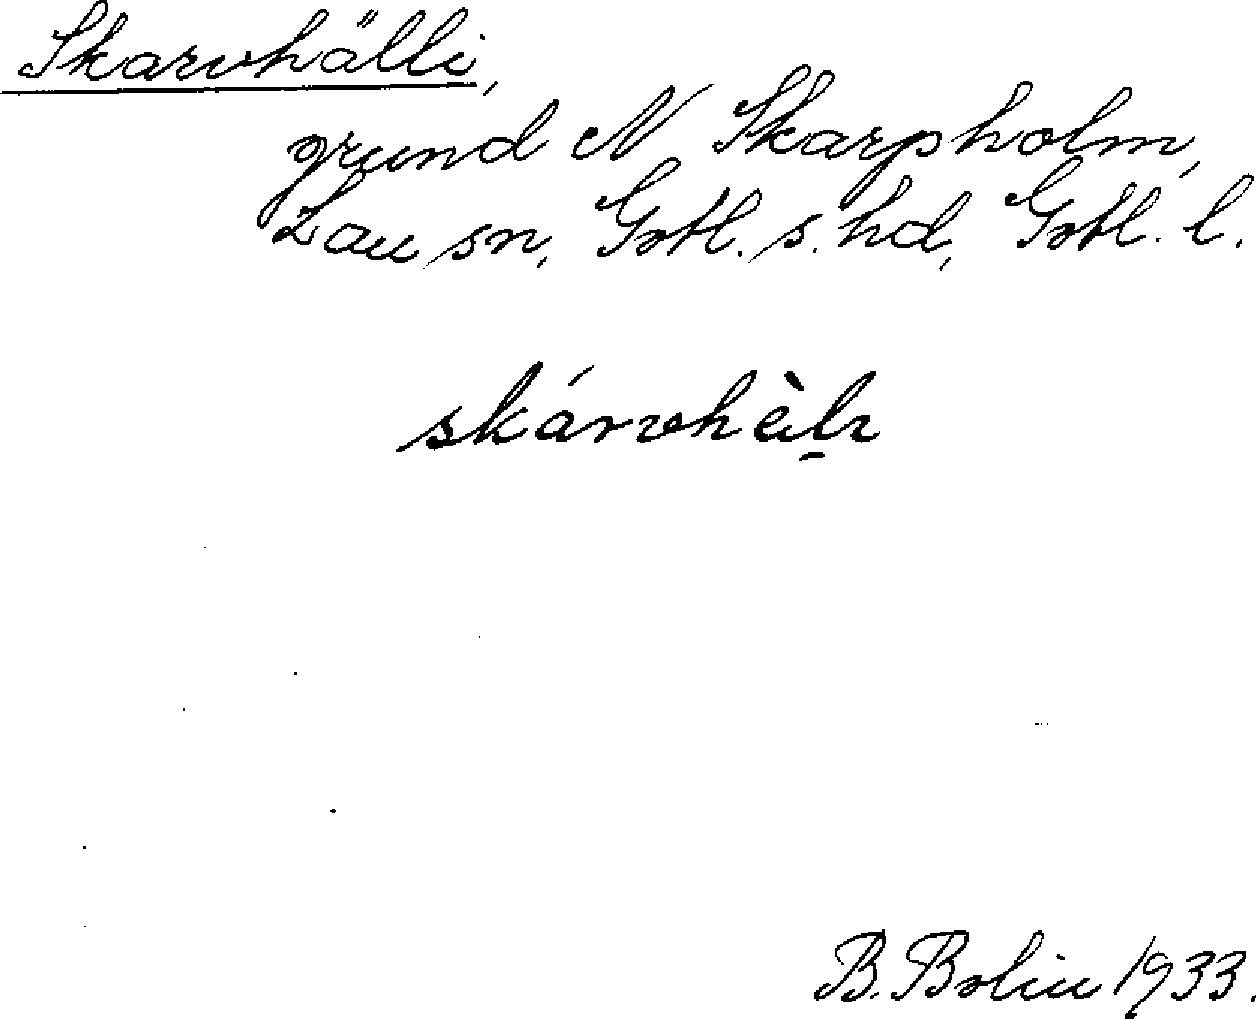 Skarvhälli,
grund N Skarpholm,
Lau sn, Gotl. s. hd, Gotl. l.
skárvhèlı
B. Bolin 1933.